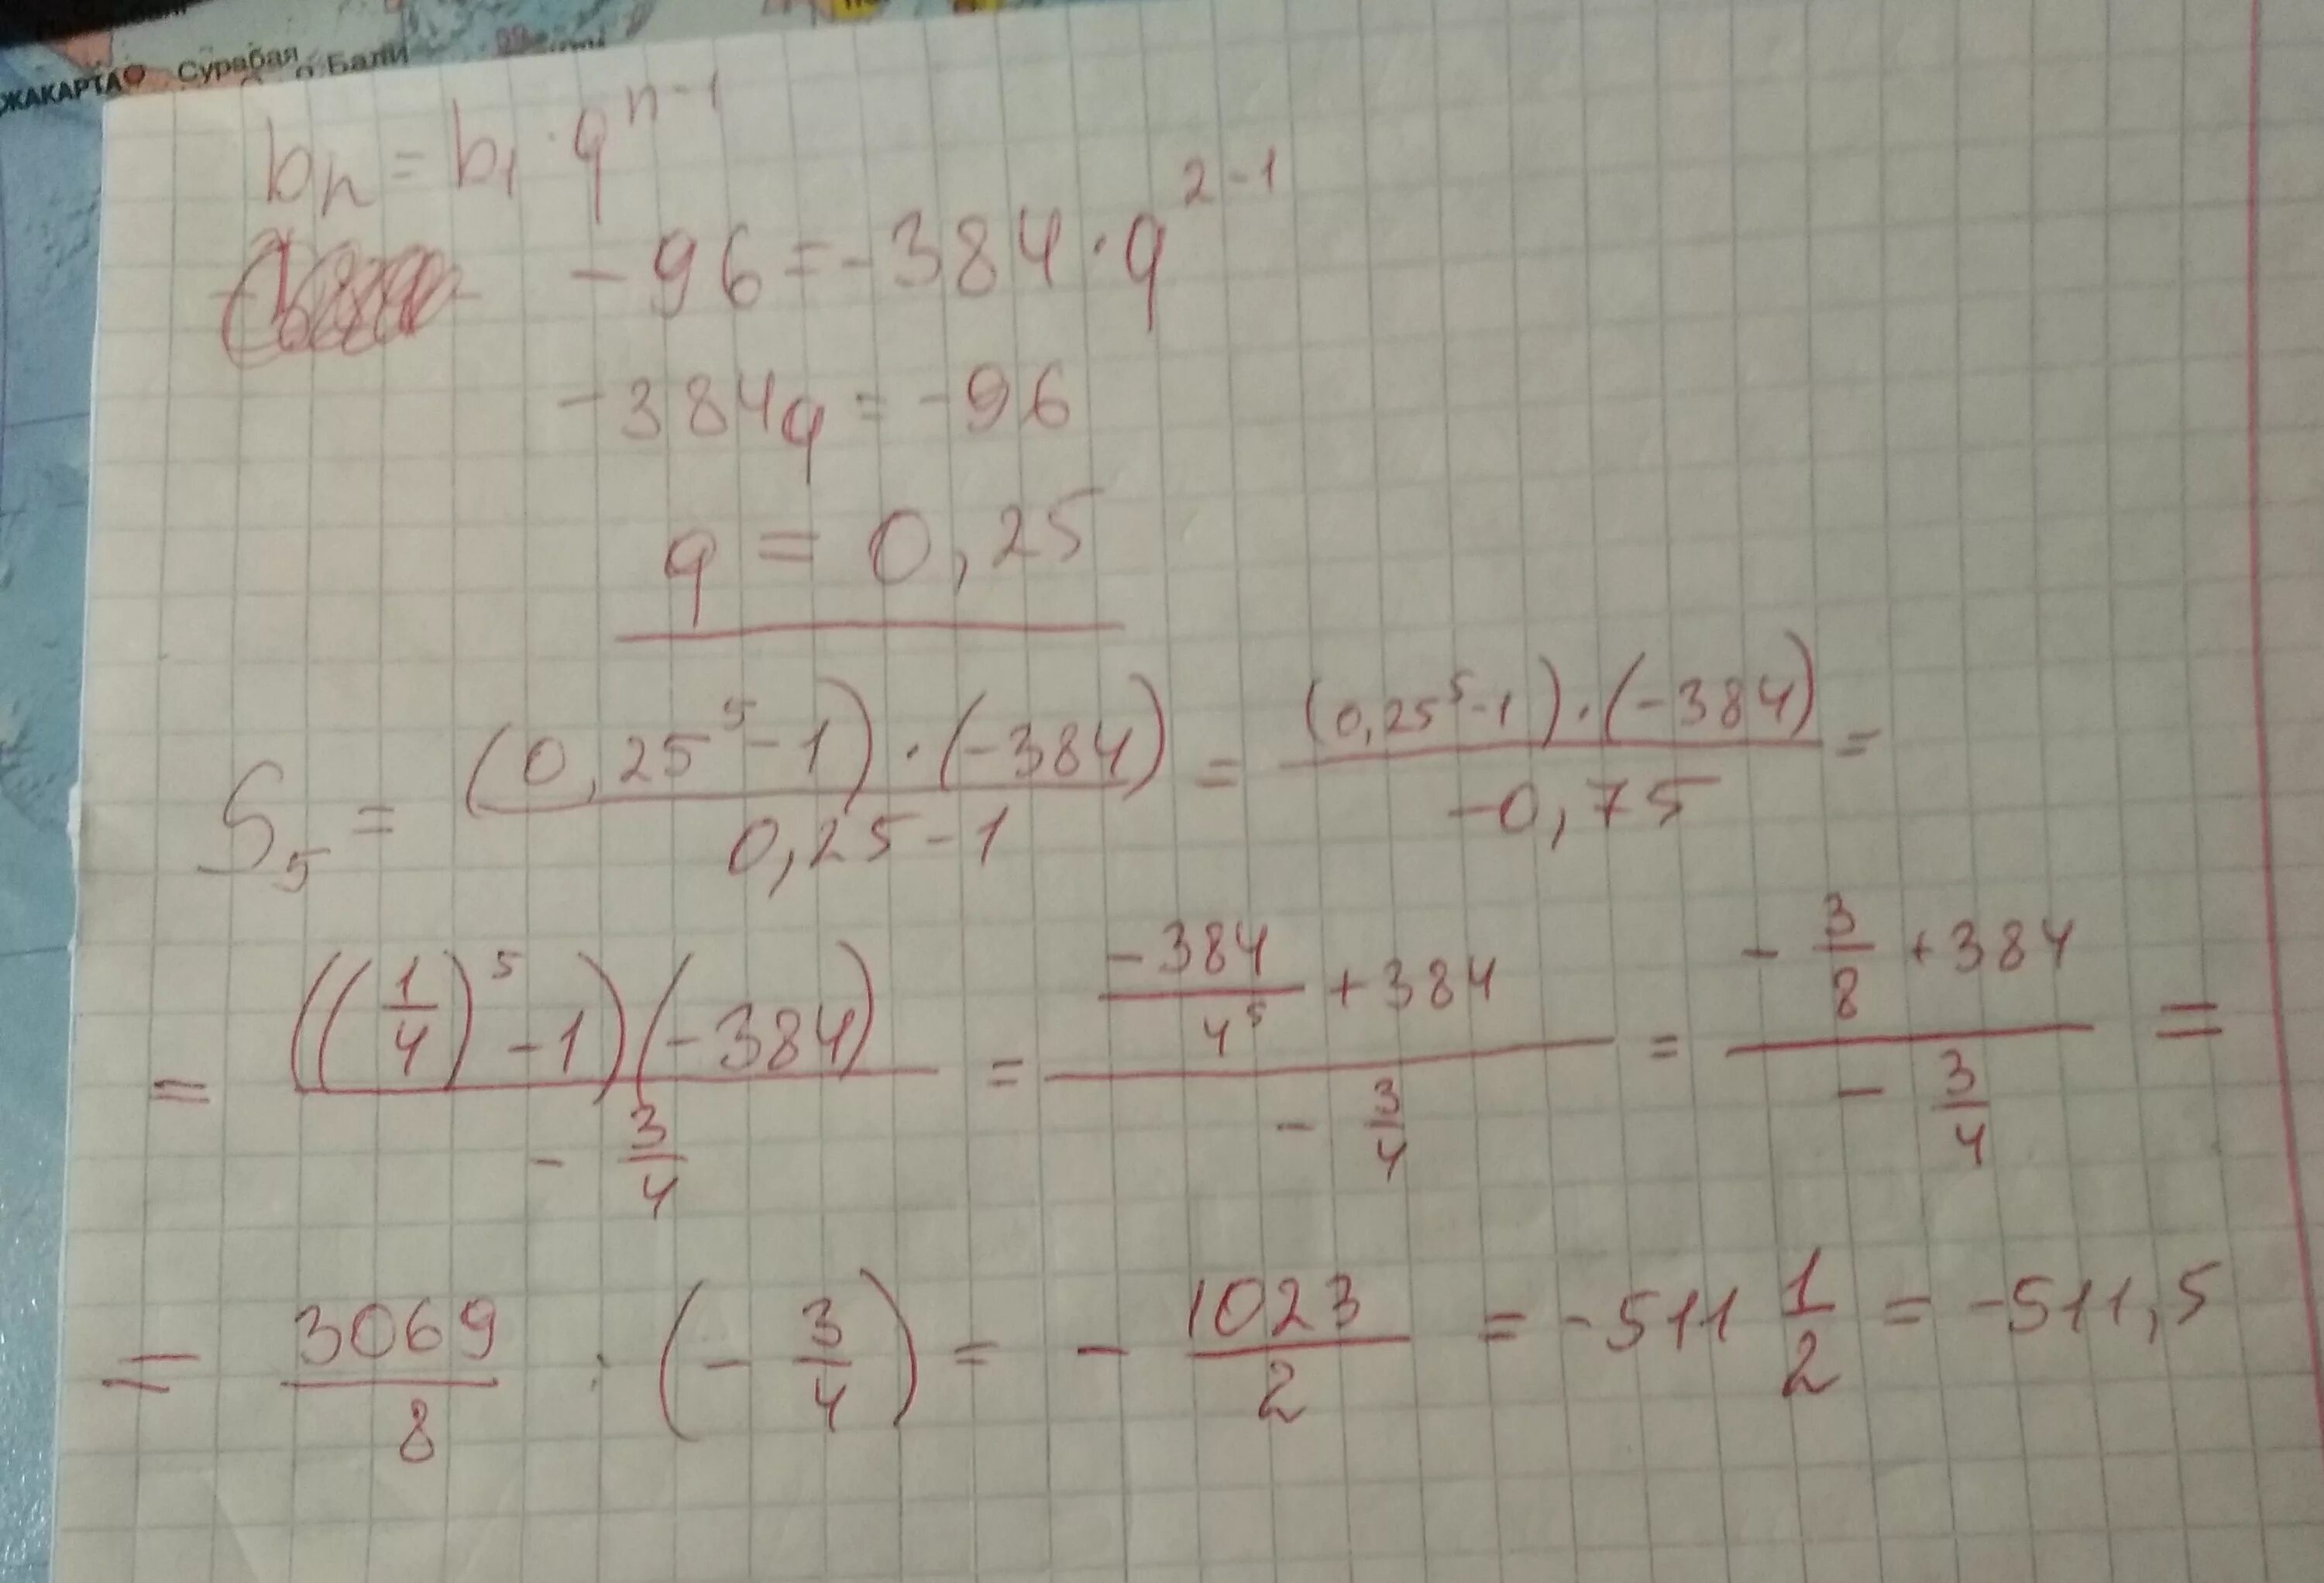 ЖАКАРТА Сурабая о.Бали
bn = b1 · q^(n-1)
-96 = -384 · q^(2-1)
-384q = -96
q = 0,25
S5 = ((0,25^5 - 1) · (-384)) / (0,25 - 1) = ((0,25^5 - 1) · (-384)) / (-0,75) =
= (((1/4)^5 - 1)(-384)) / (- 3/4) = (-384/4^5 + 384) / (- 3/4) = (- 3/8 + 384) / (- 3/4) =
= 3069/8 : (- 3/4) = - 1023/2 = -511 1/2 = -511,5